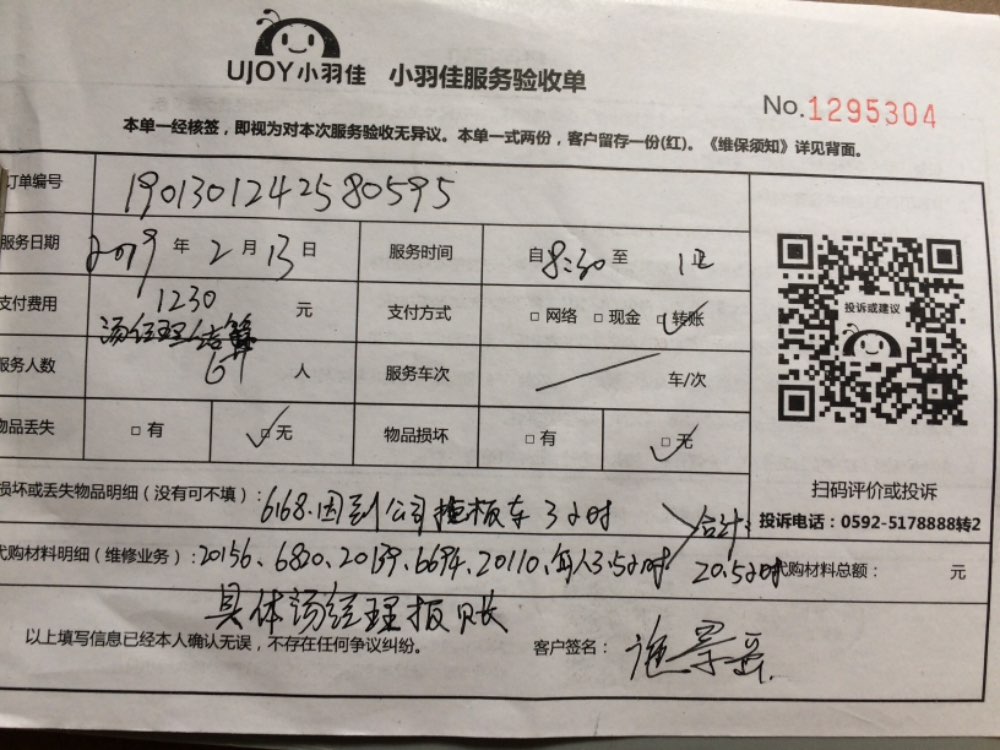 UJOY小羽佳 小羽佳服务验收单
No.1295304
本单一经核签，即视为对本次服务验收无异议。本单一式两份，客户留存一份(红)。《维保须知》详见背面。
订单编号 190130124258 0595
服务日期 2019 年 2 月 13 日 服务时间 自 8:30 至 12
支付费用 1230 元 支付方式 □ 网络 □ 现金 □ 转账
汤经理结算
服务人数 6个 人 服务车次 车/次
物品丢失 □ 有 □ 无 物品损坏 □ 有 □ 无
投诉或建议
扫码评价或投诉
投诉电话：0592-5178888转2
损坏或丢失物品明细（没有可不填）：6168.因到公司拖板车3小时 合计：
代购材料明细（维修业务）：20156、6820、20139、6694、20110、每人3.5小时 20.5小时 代购材料总额： 元
具体汤经理报账
以上填写信息已经本人确认无误，不存在任何争议纠纷。 客户签名：